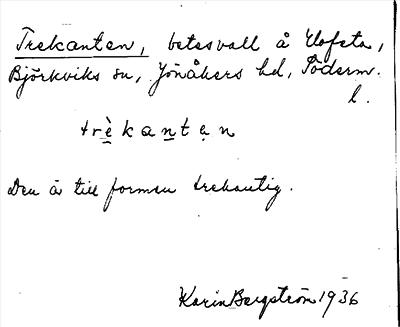 Trekanten, betesvall å Klofsta,
Björkviks sn, Jönåkers hd, Söderm.
l.
trè̱kanṯạn
Den är till formen trekantig.
Karin Bergström 1936